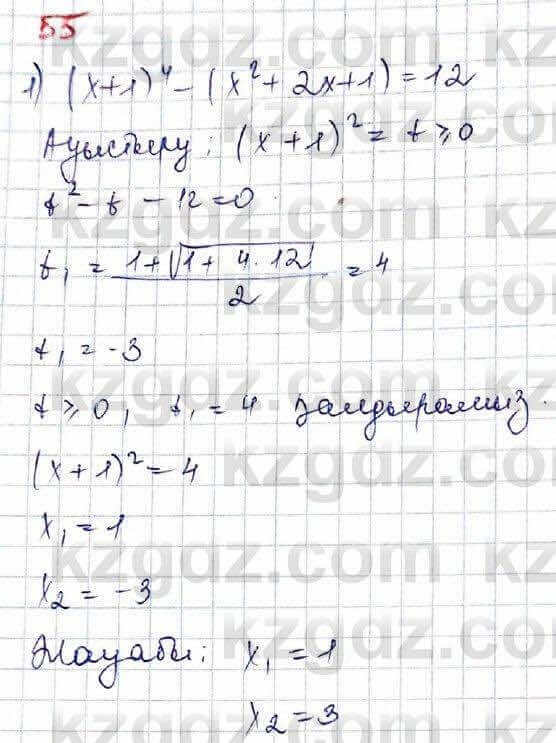 55
1) (x+1)⁴ - (x² + 2x+1) = 12
Ауыстыру: (x+1)² = t ≥ 0
t² - t - 12 = 0
t₁ = (1+√(1+4·12))/2 = 4
t₁ = -3
t ≥ 0, t₁ = 4 қалдырамыз.
(x+1)² = 4
x₁ = 1
x₂ = -3
Жауабы: x₁ = 1
x₂ = 3
kzgdz.com